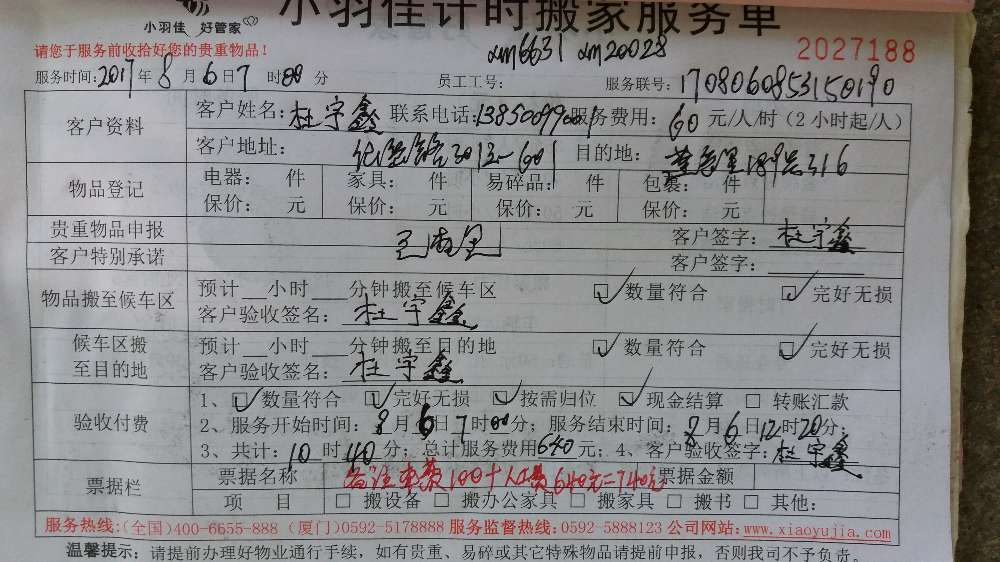 小羽佳计时搬家服务单
小羽佳 好管家
请您于服务前收拾好您的贵重物品！
xm6631 xm20028
2027188
服务时间：2017年8月6日7时00分 员工工号： 服务联号：1708060853150190
客户资料
客户姓名：杜宇鑫 联系电话： 服务费用：60元/人/时（2小时起/人）
客户地址： 301 目的地：
物品登记
电器： 件 家具： 件 易碎品： 件 包裹： 件
保价： 元 保价： 元 保价： 元 保价： 元
贵重物品申报 客户签字：杜宇鑫
客户特别承诺 客户签字：
物品搬至候车区
预计 小时 分钟搬至候车区 数量符合 完好无损
客户验收签名：杜宇鑫
候车区搬至目的地
预计 小时 分钟搬至目的地 数量符合 完好无损
客户验收签名：杜宇鑫
验收付费
1、 数量符合 完好无损 按需归位 现金结算 转账汇款
2、服务开始时间：8月6日7时00分；服务结束时间：8月6日12时20分；
3、共计：10时40分；总计服务费用640元；4、客户验收签字：杜宇鑫
票据栏
票据名称 备注车费100+人工费640元=740元 票据金额
项 目 搬设备 搬办公家具 搬家具 搬书 其他：
服务热线：（全国）400-6655-888（厦门）0592-5178888 服务监督热线：0592-5888123 公司网站：www.xiaoyujia.com
温馨提示：请提前办理好物业通行手续，如有贵重、易碎或其它特殊物品请提前申报，否则我司不予负责。